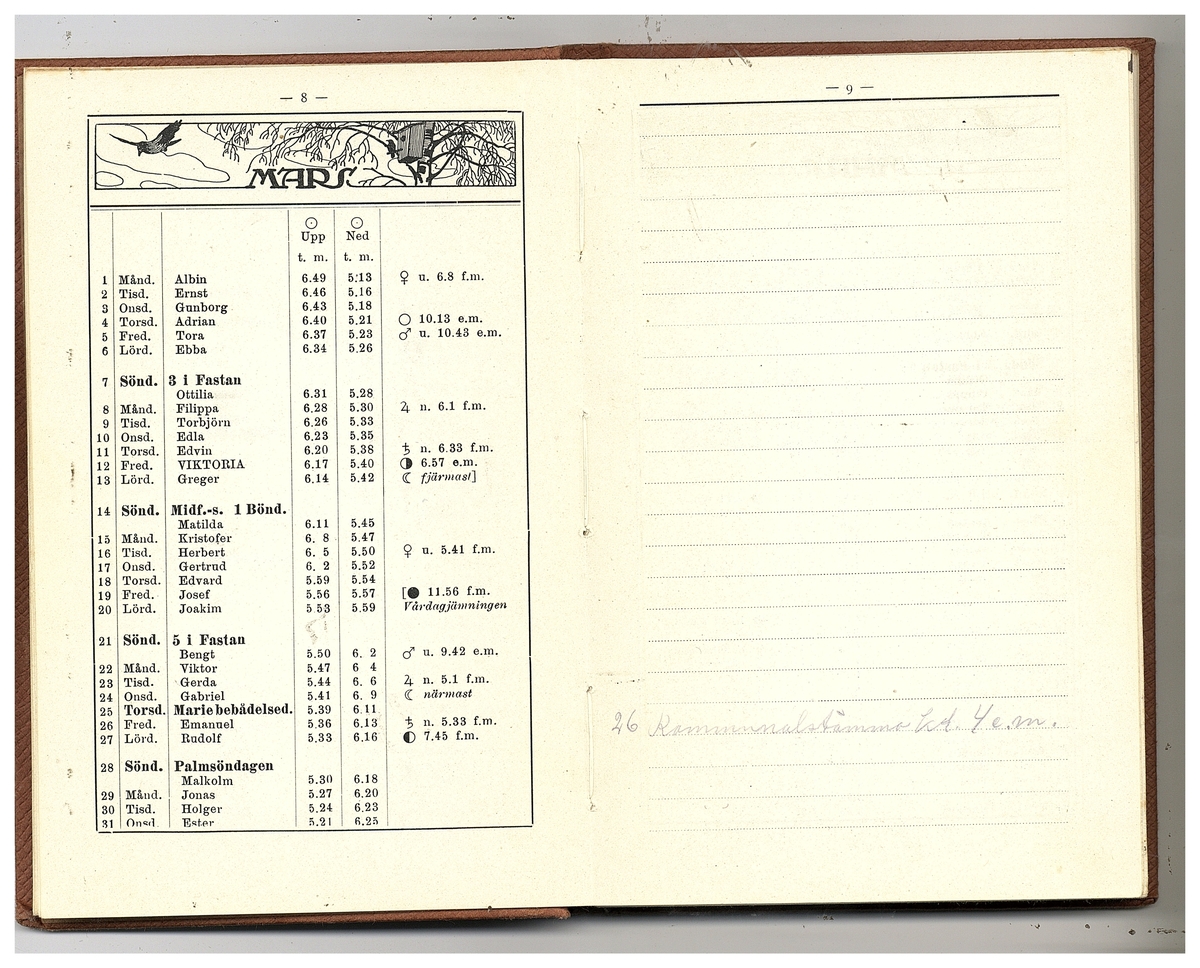 — 8 —
MARS
☉ ☉
Upp Ned
t. m. t. m.
1 Månd. Albin 6.49 5.13 ♀ u. 6.8 f.m.
2 Tisd. Ernst 6.46 5.16
3 Onsd. Gunborg 6.43 5.18
4 Torsd. Adrian 6.40 5.21 ○ 10.13 e.m.
5 Fred. Tora 6.37 5.23 ♂ u. 10.43 e.m.
6 Lörd. Ebba 6.34 5.26
7 Sönd. 3 i Fastan
Ottilia 6.31 5.28
8 Månd. Filippa 6.28 5.30 ♃ n. 6.1 f.m.
9 Tisd. Torbjörn 6.26 5.33
10 Onsd. Edla 6.23 5.35
11 Torsd. Edvin 6.20 5.38 ♄ n. 6.33 f.m.
12 Fred. VIKTORIA 6.17 5.40 ◑ 6.57 e.m.
13 Lörd. Greger 6.14 5.42 ☾ fjärmast]
14 Sönd. Midf.-s. 1 Bönd.
Matilda 6.11 5.45
15 Månd. Kristofer 6. 8 5.47
16 Tisd. Herbert 6. 5 5.50 ♀ u. 5.41 f.m.
17 Onsd. Gertrud 6. 2 5.52
18 Torsd. Edvard 5.59 5.54
19 Fred. Josef 5.56 5.57 [● 11.56 f.m.
20 Lörd. Joakim 5 53 5.59 Vårdagjämningen
21 Sönd. 5 i Fastan
Bengt 5.50 6. 2 ♂ u. 9.42 e.m.
22 Månd. Viktor 5.47 6 4
23 Tisd. Gerda 5.44 6. 6 ♃ n. 5.1 f.m.
24 Onsd. Gabriel 5.41 6. 9 ☾ närmast
25 Torsd. Marie bebådelsed. 5.39 6.11
26 Fred. Emanuel 5.36 6.13 ♄ n. 5.33 f.m.
27 Lörd. Rudolf 5.33 6.16 ◐ 7.45 f.m.
28 Sönd. Palmsöndagen
Malkolm 5.30 6.18
29 Månd. Jonas 5.27 6.20
30 Tisd. Holger 5.24 6.23
31 Onsd. Ester 5.21 6.25
— 9 —
26 Kommunalstämma kl. 4 e.m.